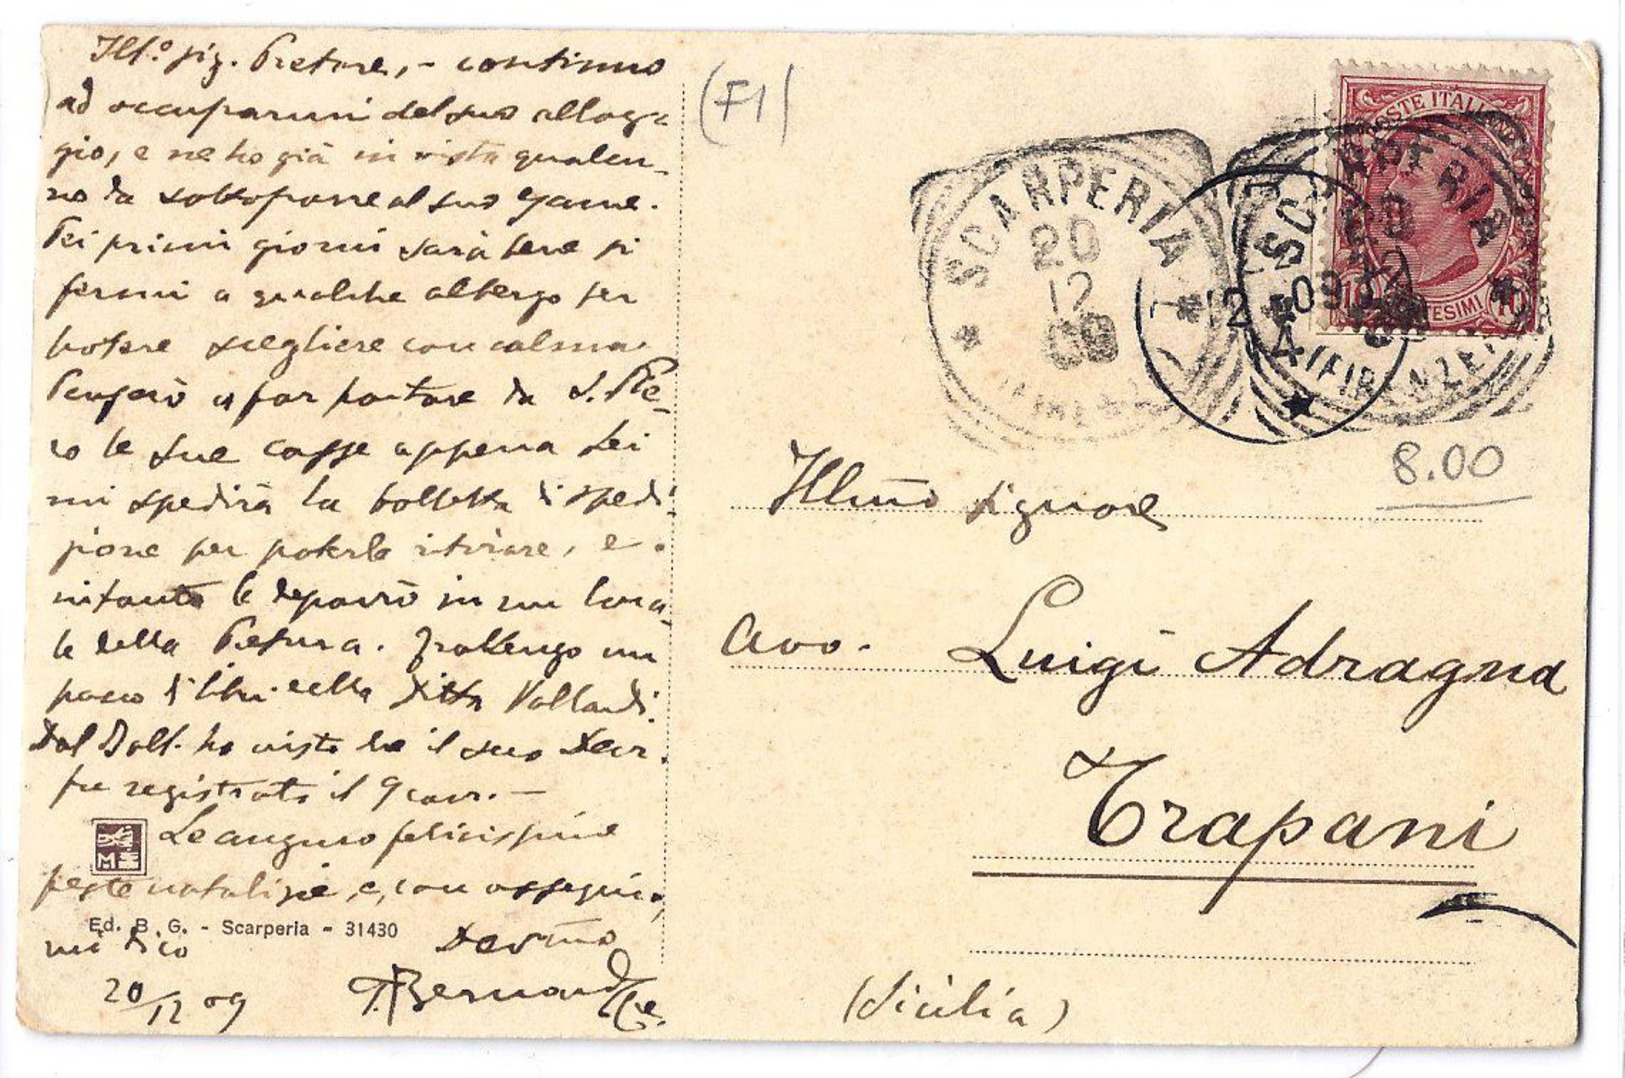 Ill.º Sig. Pretore, - continuo
ad occuparmi del suo allog-
gio, e ne ho già in vista qualcu-
no da sottoporre al suo esame.
Nei primi giorni sarà bene si
fermi a qualche albergo per
potere scegliere con calma.
Penserò a far portare da S. Pie-
ro le sue casse appena Lei
mi spedirà la bolletta di spedi-
zione per poterle ritirare, e
intanto le deporrò in un loca-
le della Pretura. Trattengo un
pacco di libri della Ditta Vallardi.
Dal Boll. ho visto che il suo Decr.
fu registrato il 9 corr. -
Le auguro felicissime
feste natalizie, e, con ossequio,
mi dico
Dev.mo
20/12 09
Ed. B. G. - Scarperia - 31430
(F1)
SCARPERIA
20
12
09
(FIRENZE)
POSTE ITALIANE
CENTESIMI
10
SCARPERIA
20
12
(FIRENZE)
8.00
Illmo Signore
Avv. Luigi Adragna
Trapani
(Sicilia)